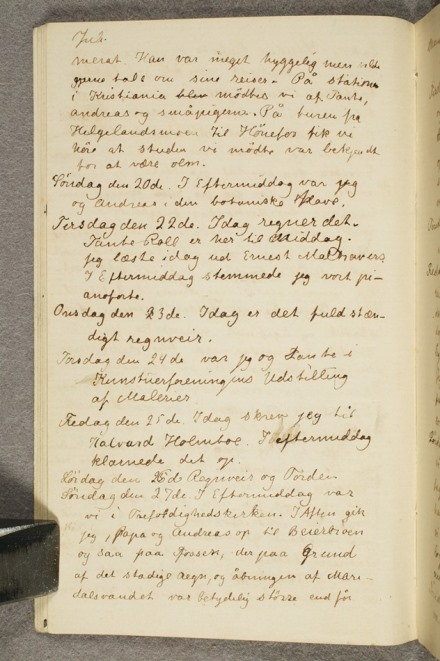 Juli.
merat. Han var meget hyggelig men vilde
gjerne tale om sine reiser. På stationen
i Kristiania blev mødtes vi af Tante,
Andreas og småpigerne. På turen fra
Helgelandsmoen til Hönefos fik vi
höre at studen vi mödte var bekjendt
for at være olm.
Søndag den 20de. I Eftermiddag var jeg
og Andreas i den botaniske Have.
Tirsdag den 22de. Idag regner det.
Tante Roll er her til Middag.
jeg læste idag ud Ernest Maltravers
I Eftermiddag stemmede jeg vort pi-
anoforte.
Onsdag den 23de. Idag er det fuldstæn-
digt regnveir.
Torsdag den 24de var jeg og Tante i
Kunstnerforeningens Udstilling
af Malerier
Fredag den 25de. Idag skrev jeg til
Halvard Holmboe. I eftermiddag
klarnede det op.
Lördag den 26d Regnveir og Torden
Söndag den 27de. I Eftermiddag var
vi i Trefoldighedskirken. I Aften gik
jeg, Papa og Andreas op til Beierbroen
og saa paa Fossen, der paa Grund
af det stadige regn, og åbningen af Mari-
dalsvandet var betydelig större end för